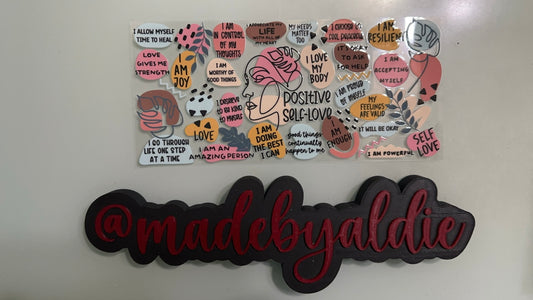 I ALLOW MYSELF
TIME TO HEAL
LOVE
GIVES ME
STRENGTH
I AM
JOY
I AM
IN CONTROL
OF MY
THOUGHTS
I APPRECIATE MY
LIFE
WITH ALL OF
MY HEART
MY NEEDS
MATTER
TOO
I CHOOSE TO
FEEL PEACEFUL
I AM
RESILIENT
I AM
WORTHY OF
GOOD THINGS
I LOVE
MY
BODY
IT'S OKAY
TO ASK
FOR HELP
I AM
ACCEPTING
MYSELF
I DESERVE
TO BE KIND
TO MYSELF
POSITIVE
SELF-LOVE
I AM PROUD
OF MYSELF
MY
FEELINGS
ARE VALID
I GO THROUGH
LIFE ONE STEP
AT A TIME
LOVE
I AM AN
AMAZING PERSON
I AM
DOING
THE BEST
I CAN
good things
continually
happen to me
I
AM
ENOUGH
IT WILL BE OKAY
I AM POWERFUL
SELF
LOVE
@madebyaldie